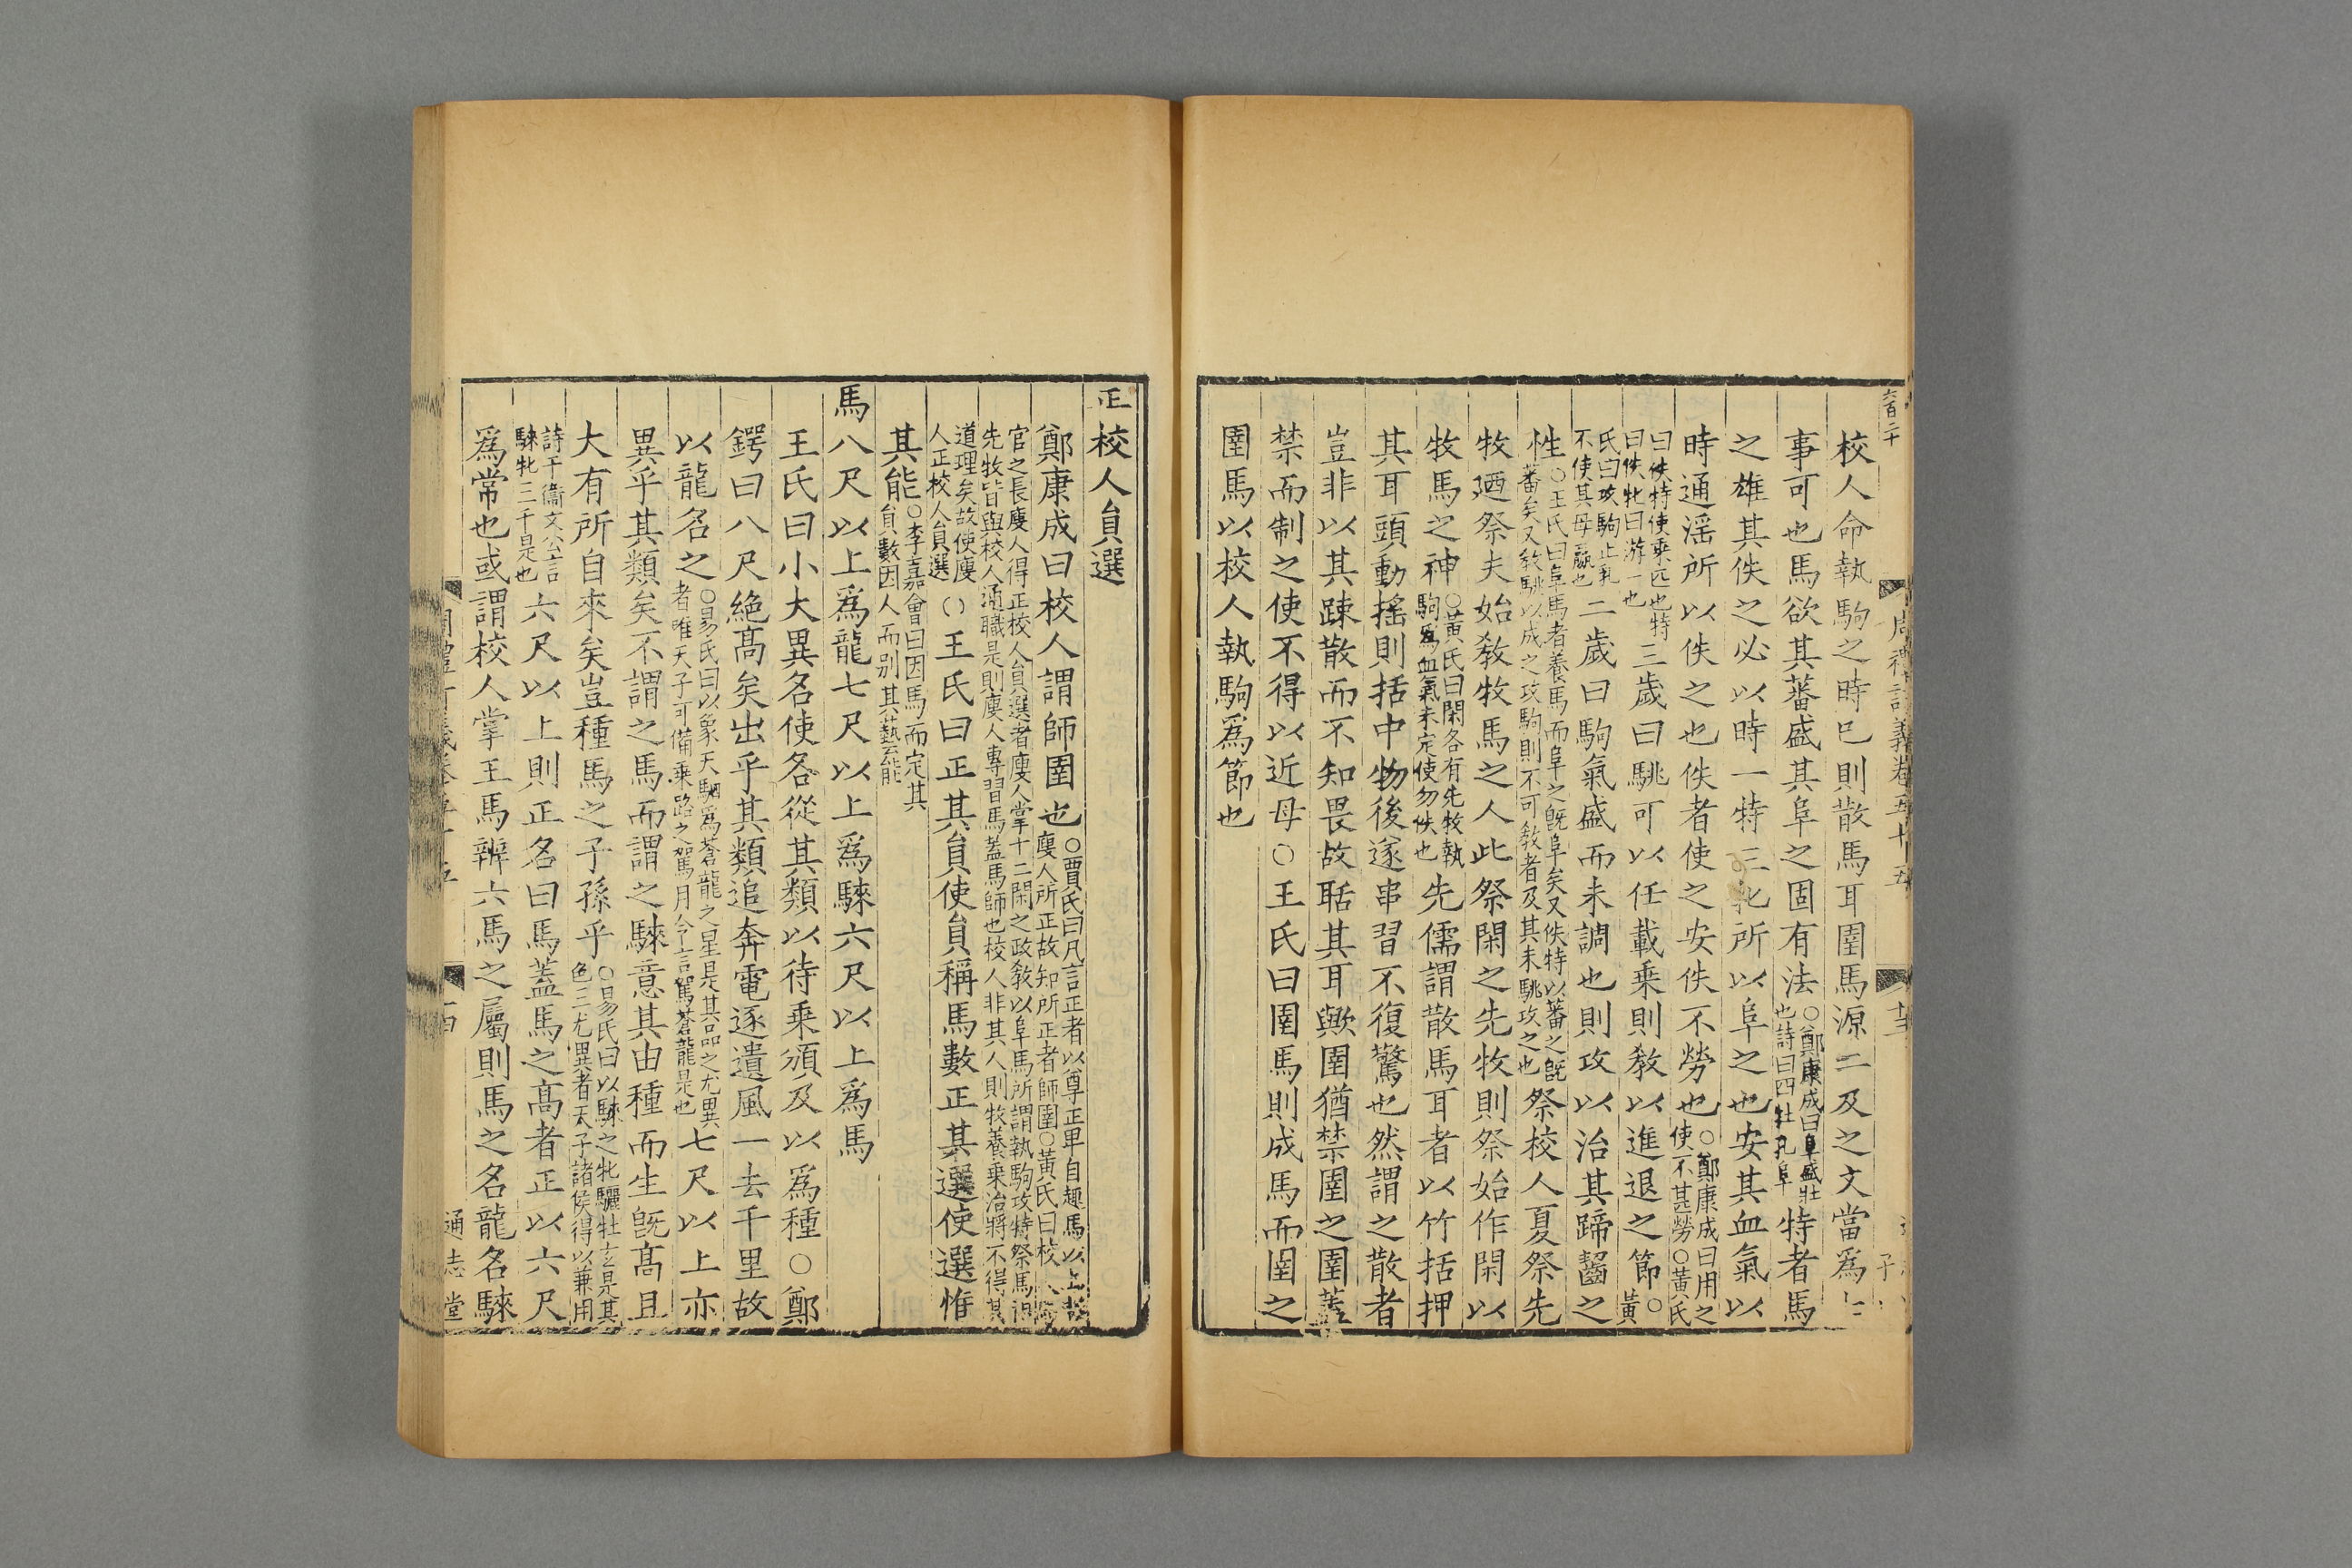 六百二十
周禮訂義卷五十五
校人命執駒之時巳則散馬耳圉馬源二及之文當爲
事可也馬欲其蕃盛其阜之固有法○鄭康成曰阜盛壯也詩曰四牡孔阜特者馬
之雄其佚之必以時一特三牝所以阜之也安其血氣以
時通滛所以佚之也佚者使之安佚不勞也○鄭康成曰用之使不甚勞○黃氏
曰佚特使乘匹也特曰佚牝曰游一也三歲曰駣可以任載乘則敎以進退之節○黃
氏曰攻駒止乳不使其母羸也二歲曰駒氣盛而未調也則攻以治其蹄齧之
性○王氏曰阜馬者養馬而阜之旣阜矣又佚特以蕃之旣蕃矣又敎駣以成之攻駒則不可敎者及其未駣攻之也祭校人夏祭先
牧廼祭夫始敎牧馬之人此祭閑之先牧則祭始作閑以
牧馬之神○黃氏曰閑各有先牧執駒爲血氣未定使勿佚也先儒謂散馬耳者以竹括押
其耳頭動搖則括中物後遂串習不復驚也然謂之散者
豈非以其踈散而不知畏故聒其耳歟圉猶禁圉之圉蓋
禁而制之使不得以近母○王氏曰圉馬則成馬而圉之
圉馬以校人執駒爲節也
正校人員選
鄭康成曰校人謂師圉也○賈氏曰凡言正者以尊正卑自趣馬以廋人所正故知所正者師圉○黃氏曰校
官之長廋人得正校人員選者廋人掌十二閑之政敎以阜馬所謂執駒攻特祭馬祖先牧皆與校人通職是則廋人專習馬蓋馬師也校人非其人則牧養乘治將不得其
道理矣故使廋人正校人員選○王氏曰正其員使員稱馬數正其選使選惟
其能○李嘉會曰因馬而定其員數因人而别其藝能
馬八尺以上爲龍七尺以上爲騋六尺以上爲馬
王氏曰小大異名使各從其類以待乘頒及以爲種○鄭
鍔曰八尺絶高矣出乎其類追奔電逐遺風一去千里故
以龍名之○易氏曰以象天駟爲蒼龍之星是其品之尤異者唯天子可備乘路之駕月令言駕蒼龍是也七尺以上亦
異乎其類矣不謂之馬而謂之騋意其由種而生旣高且
大有所自來矣豈種馬之子孫乎○易氏曰以騋之牝驪牡玄是其色之尤異者天子諸侯得以兼用
詩于衞文公言騋牝三千是也六尺以上則正名曰馬蓋馬之高者正以六尺
爲常也或謂校人掌王馬辨六馬之屬則馬之名龍名騋
通志堂